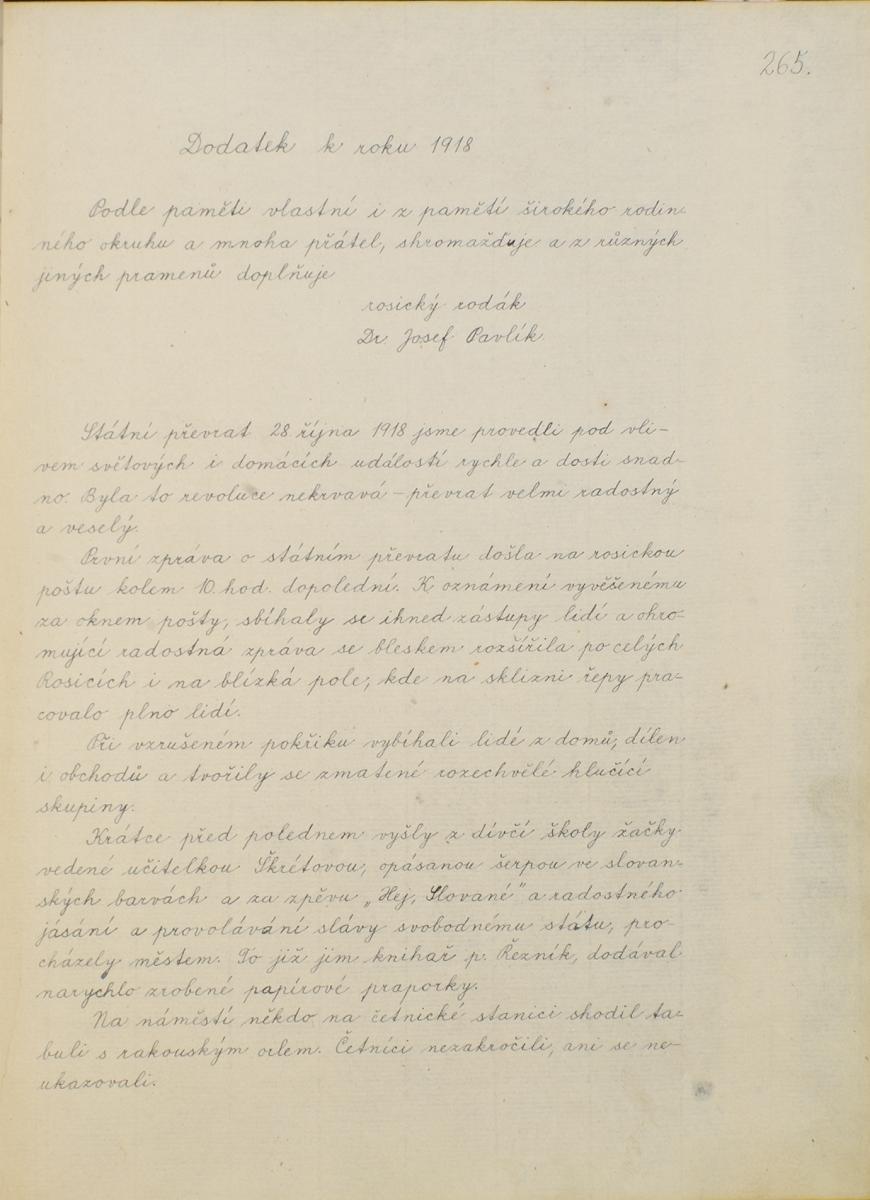 265.
Dodatek k roku 1918
Podle paměti vlastní i z pamětí širokého rodin-
ného okruhu a mnoha přátel, shromažďuje a z různých
jiných pramenů doplňuje
rosický rodák
Dr. Josef Pavlík
Státní převrat 28. října 1918 jsme provedli pod vli-
vem světových i domácích událostí rychle a dosti snad-
no. Byla to revoluce nekrvavá – převrat velmi radostný
a veselý.
První zpráva o státním převratu došla na rosickou
poštu kolem 10. hod. dopolední. K oznámení vyvěšenému
za oknem pošty, sbíhaly se ihned zástupy lidí a ohro-
mující radostná zpráva se bleskem rozšířila po celých
Rosicích i na blízká pole, kde na sklizni řepy pra-
covalo plno lidí.
Při vzrušeném pokřiku vybíhali lidé z domů, dílen
i obchodů a tvořily se zmatené rozechvělé hlučící
skupiny.
Krátce před polednem vyšly z dívčí školy žačky
vedené učitelkou Škrétovou, opásanou šerpou ve slovan-
ských barvách a za zpěvu „Hej, Slované" a radostného
jásání a provolávání slávy svobodnému státu, pro-
cházely městem. To již jim knihař p. Řezník, dodával
narychlo zrobené papírové praporky.
Na náměstí někdo na četnické stanici shodil ta-
buli s rakouským orlem. Četníci nezakročili, ani se ne-
ukazovali.